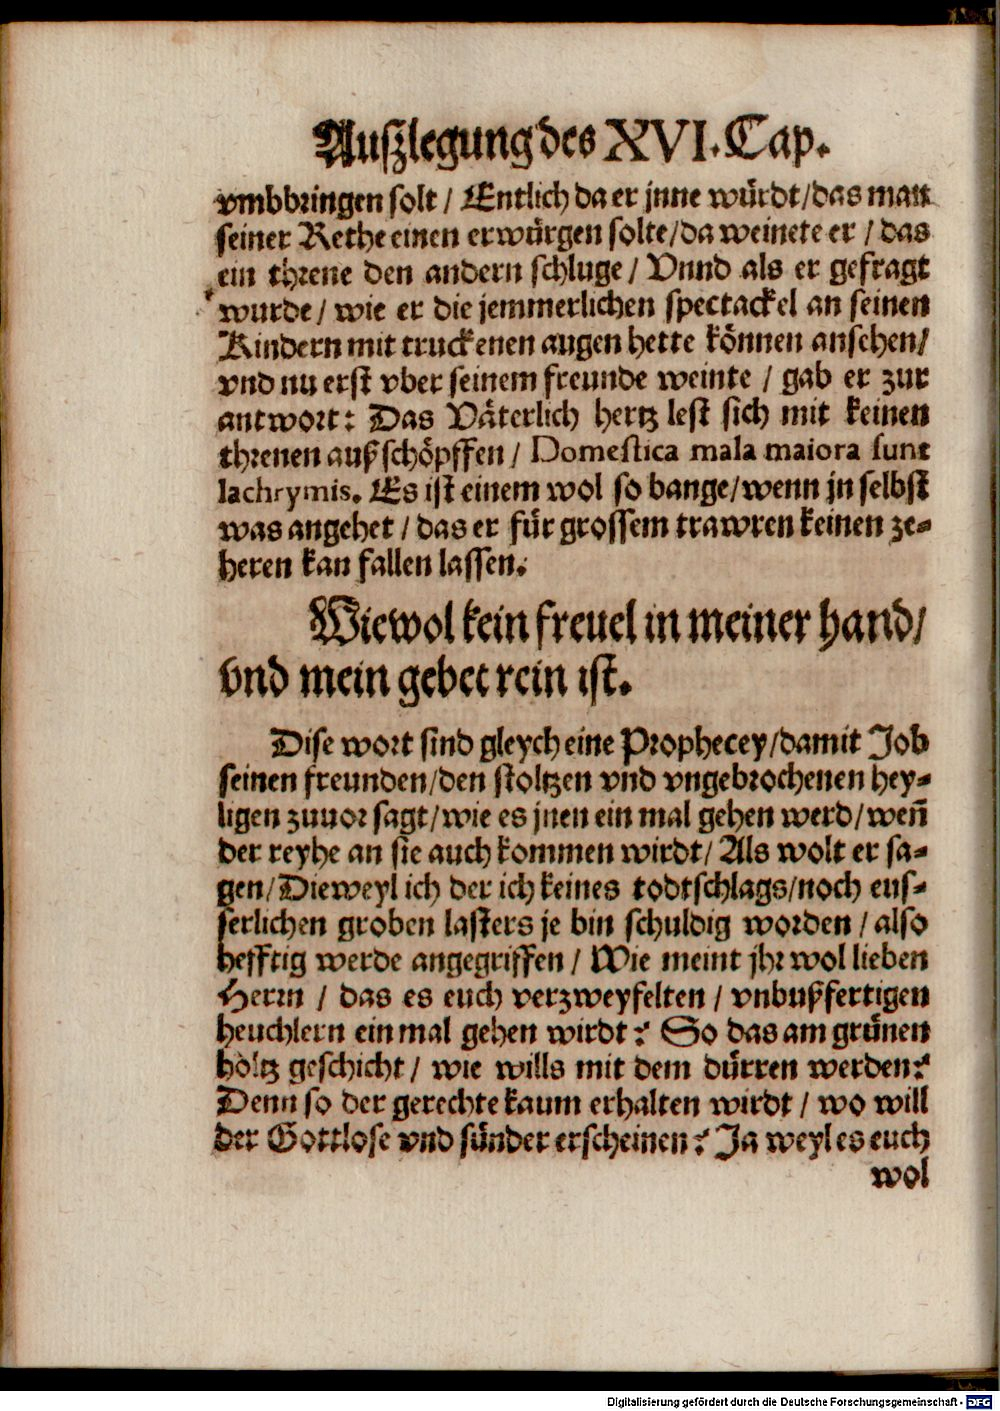 Auszlegung des XVI. Cap.
vmbbringen solt / Entlich da er jnne würdt / das man
seiner Rethe einen erwürgen solte / da weinete er / das
ein threne den andern schluge / Vnnd als er gefragt
wurde / wie er die jemmerlichen spectackel an seinen
Kindern mit truckenen augen hette können ansehen /
vnd nu erst vber seinem freunde weinte / gab er zur
antwort: Das Väterlich hertz lest sich mit keinen
threnen außschöpffen / Domestica mala maiora sunt
lachrymis. Es ist einem wol so bange / wenn jn selbst
was angehet / das er für grossem trawren keinen ze-
heren kan fallen lassen.
Wiewol kein freuel in meiner hand /
vnd mein gebet rein ist.
Dise wort sind gleych eine Prophecey / damit Job
seinen freunden / den stoltzen vnd vngebrochenen hey-
ligen zuuor sagt / wie es jnen ein mal gehen werd / weñ
der reyhe an sie auch kommen wirdt / Als wolt er sa-
gen / Dieweyl ich der ich keines todtschlags / noch eus-
serlichen groben lasters je bin schuldig worden / also
hefftig werde angegriffen / Wie meint jhr wol lieben
Herrn / das es euch verzweyfelten / vnbußfertigen
heuchlern ein mal gehen wirdt? So das am grünen
holtz geschicht / wie wills mit dem dürren werden?
Denn so der gerechte kaum erhalten wirdt / wo will
der Gottlose vnd sünder erscheinen? Ja weyl es euch
wol
Digitalisierung gefördert durch die Deutsche Forschungsgemeinschaft - DFG